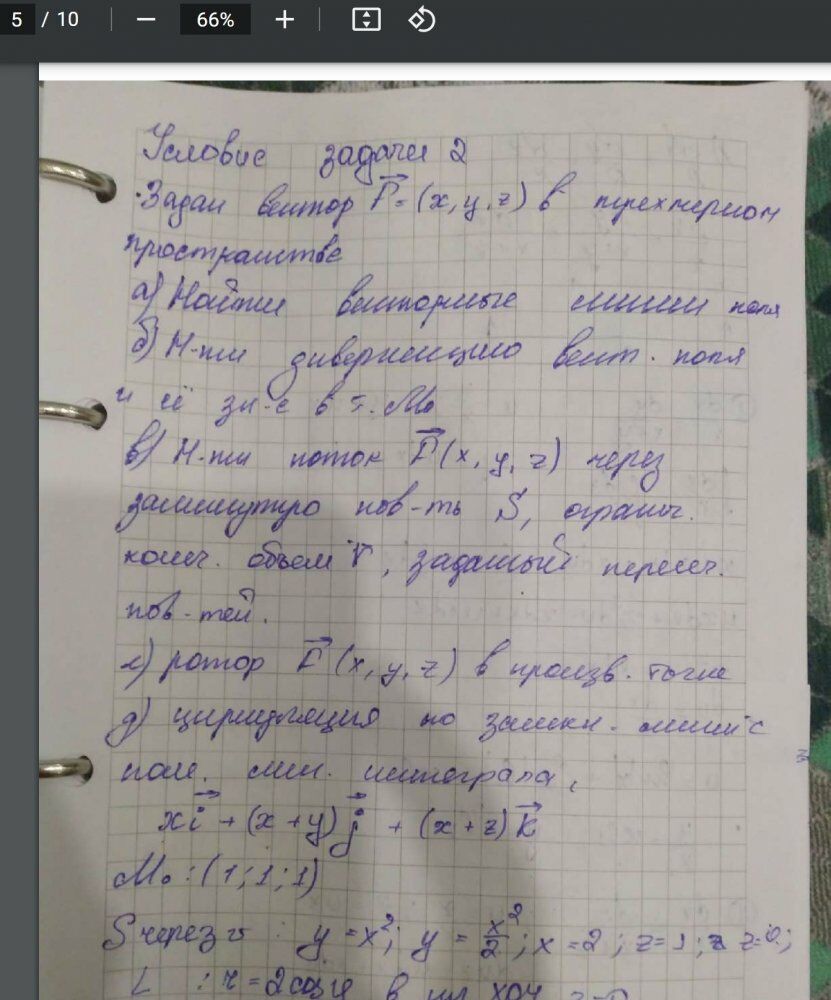 5 / 10 66%
Условие задачи 2
Задан вектор F=(x, y, z) в трехмерном
пространстве
а) Найти векторные линии поля
б) Н-ти дивергенцию вект. поля
и её зн-е в т. M₀
в) Н-ти поток F(x, y, z) через
замкнутую пов-ть S, огранич.
конеч. объем V, заданный пересеч.
пов-тей.
г) ротор F (x, y, z) в произв. точке
д) циркуляция по замкн. линии с
пом. лин. интеграла,
xi + (x+y)j + (x+z)k
M₀ : (1; 1; 1)
S через v : y = x²; y = x²/2; x = 2; z = 1; z = 0;
L : r = 2cosφ в пл XOY